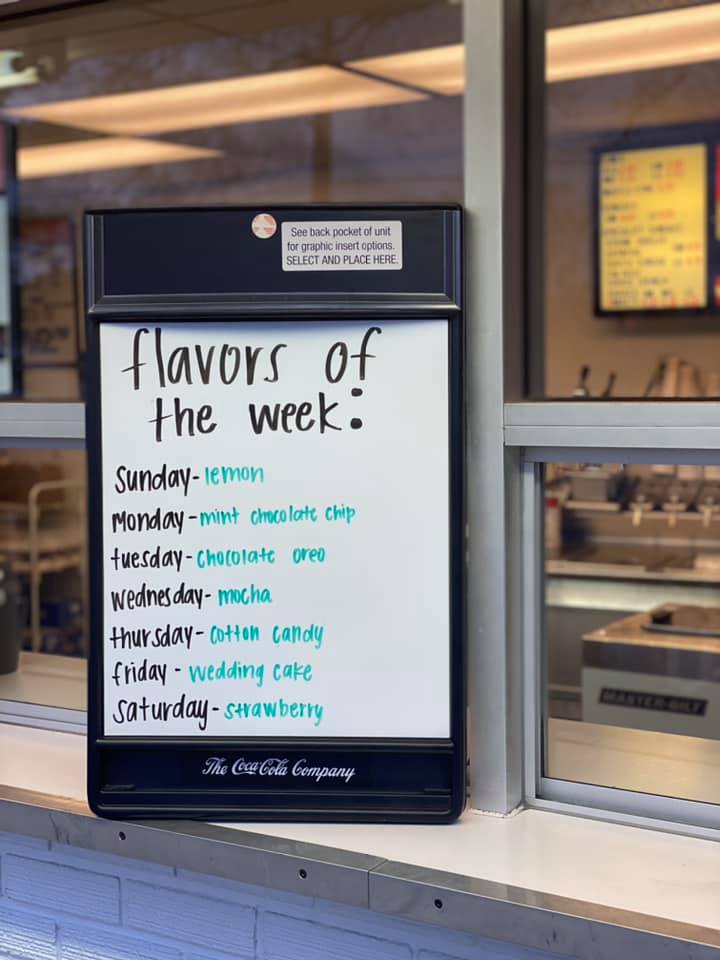 See back pocket of unit
for graphic insert options.
SELECT AND PLACE HERE.
flavors of
the week:
Sunday - lemon
Monday - mint chocolate chip
tuesday - chocolate oreo
wednesday - mocha
thursday - cotton candy
friday - wedding cake
saturday - strawberry
The Coca-Cola Company
MASTER-BILT